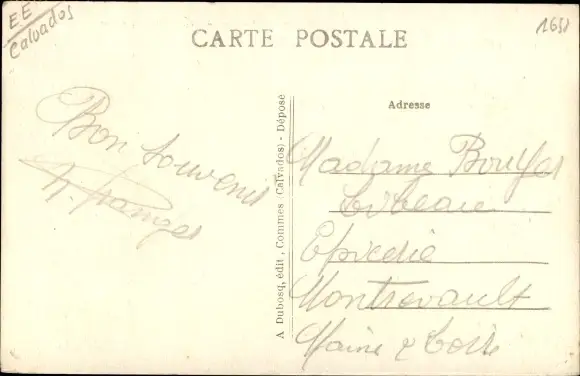 EE
Calvados
1651
CARTE POSTALE
Bon souvenir
A. Dubosq, édit., Commes (Calvados) - Déposé
Adresse
Madame
Epicerie
Montrevault
Maine & Loire